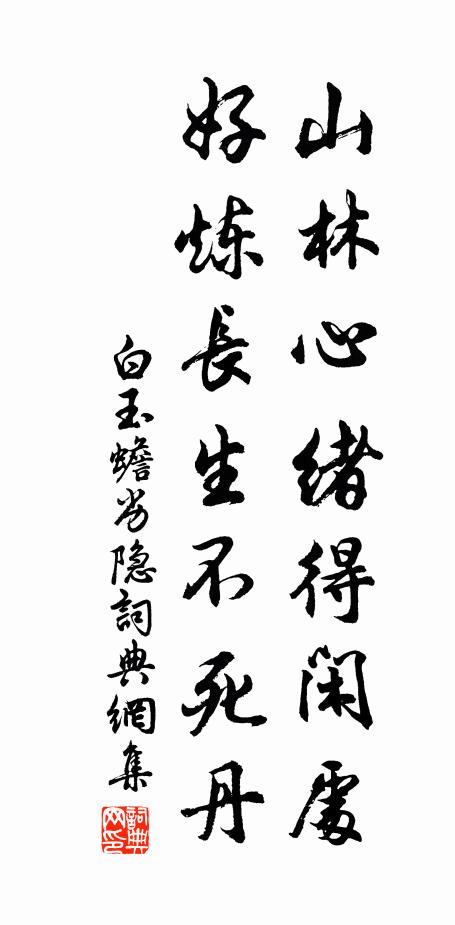 山林心緒得閑處
好炼長生不死丹
白玉蟾劣隐詞典網集
詞典網印